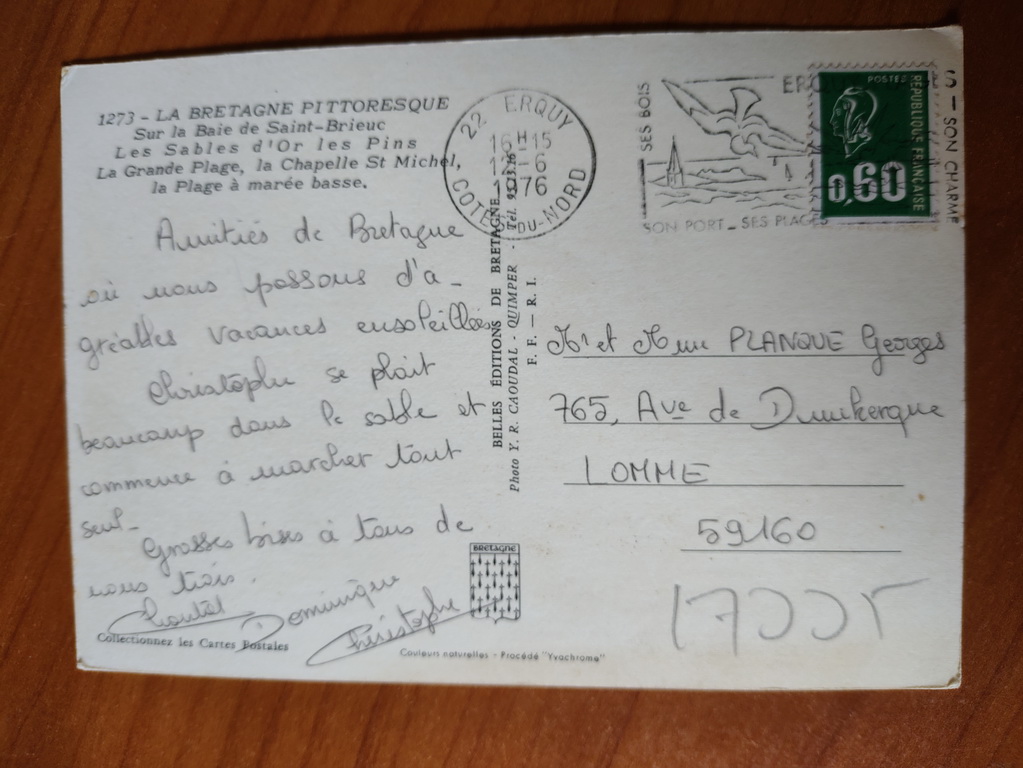 1273 - LA BRETAGNE PITTORESQUE
Sur la Baie de Saint-Brieuc
Les Sables d'Or les Pins
La Grande Plage, la Chapelle St Michel,
la Plage à marée basse.
Amitiés de Bretagne
où nous passons d'a-
gréables vacances ensoleillées
Christophe se plait
beaucoup dans le sable et
commence à marcher tout
seul-
Grosses bises à tous de
nous trois.
Chantal Dominique
Christophe
Collectionnez les Cartes Postales
22 ERQUY
16H15
12-6
1976
COTES-DU-NORD
BELLES ÉDITIONS DE BRETAGNE
Photo Y. R. CAOUDAL - QUIMPER - Tél.
F. F. - R. I.
BRETAGNE
Couleurs naturelles - Procédé "Yvachrome"
SES BOIS
SON PORT - SES PLAGES
S - SON CHARME
POSTES
RÉPUBLIQUE FRANÇAISE
0,60
Mr et Mme PLANQUE Georges
765, Ave de Dunkerque
LOMME
59160